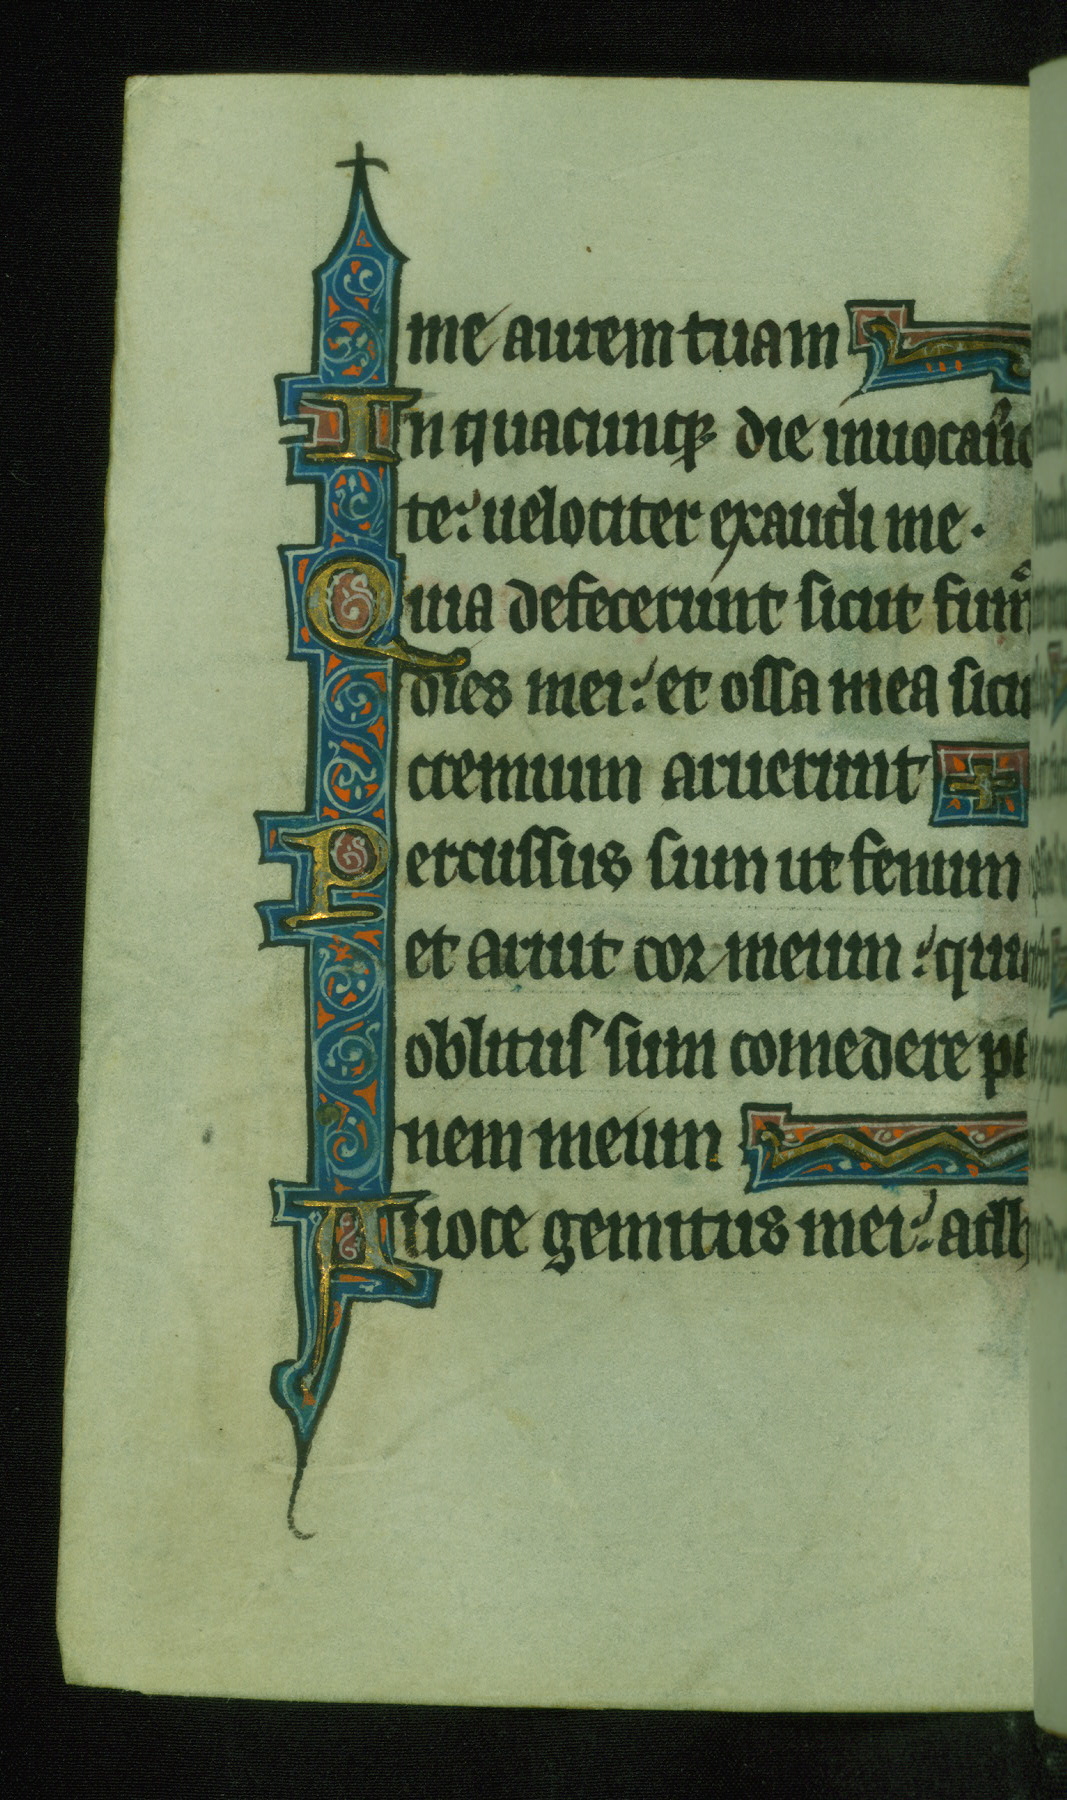 me aurem tuam
In quacunq; die inuocauero
te: uelociter exaudi me.
Quia defecerunt sicut fum̄
dies mei: et ossa mea sicu
cremium aruerunt
Percussus sum ut fenum
et aruit cor meum: qui
oblitus sum comedere pa
nem meum
A uoce gemitus mei: adh